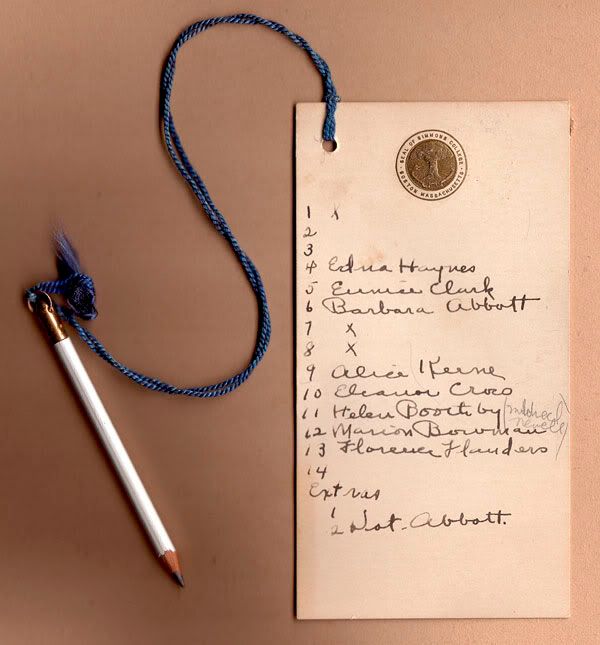 SEAL OF SIMMONS COLLEGE
BOSTON MASSACHUSETTS
1 x
2
3
4 Edna Haynes
5 Eunice Clark
6 Barbara Abbott
7 x
8 x
9 Alice Keene
10 Eleanor Cross
11 Helen Boothby (mildred
newell)
12 Marion Bowman
13 Florence Flanders
14
Extras
1
2 Abbott.